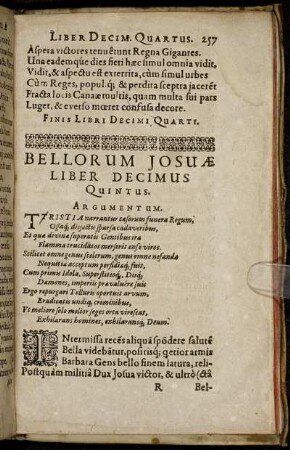 LIBER DECIM. QUARTUS. 257
Aspera victores tenuêrunt Regna Gigantes.
Una eademque dies fieri hæc simul omnia vidit,
Vidit, & aspectu est exterrita, cùm simul urbes
Cùm Reges, popul.q́; & perdita sceptra jacerēt
Fracta locis Canaæ multis, quam multa sui pars
Luget, & everso mœret confusa decore.
FINIS LIBRI DECIMI QUARTI.
BELLORUM JOSUÆ
LIBER DECIMUS
QUINTUS.
ARGUMENTUM.
TRISTIA narrantur cæsorum funera Regum,
Ossaq; disjectis sparsa cadaveribus,
Et qua divina superatis Gentibus ira
Flamma trucidatos merserit ense viros.
Scilicet omnogenus scelerum, genus omne nefanda
Nequitia acceptum perfidiaq; fuit,
Cum primis Idola, Superstitioq;, Diiq;
Dæmones, imperiis prævaluere suis
Ergo repurgari Telluris oportuit arvum,
Eradicatis undiq; criminibus,
Ut meliore solo melior seges orta virescat,
Exhilarans homines, exhilaransq; Deum.
INtermissa recēs aliquā spōdere salutē
Bella videbātur, posirisq; qetior armis
Barbara Gens bello finem latura, reli-
Postquam militiâ Dux Josua victor, & ultrò (ctâ
R Bel-